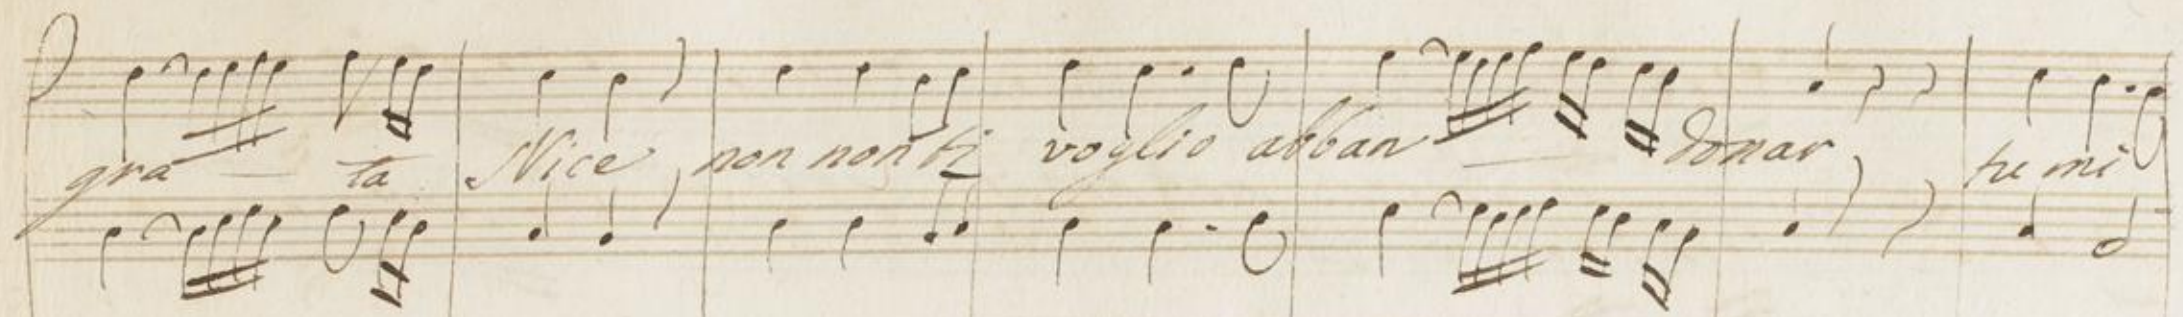 gra - ta Nice non non ti voglio abban - donar tu mi